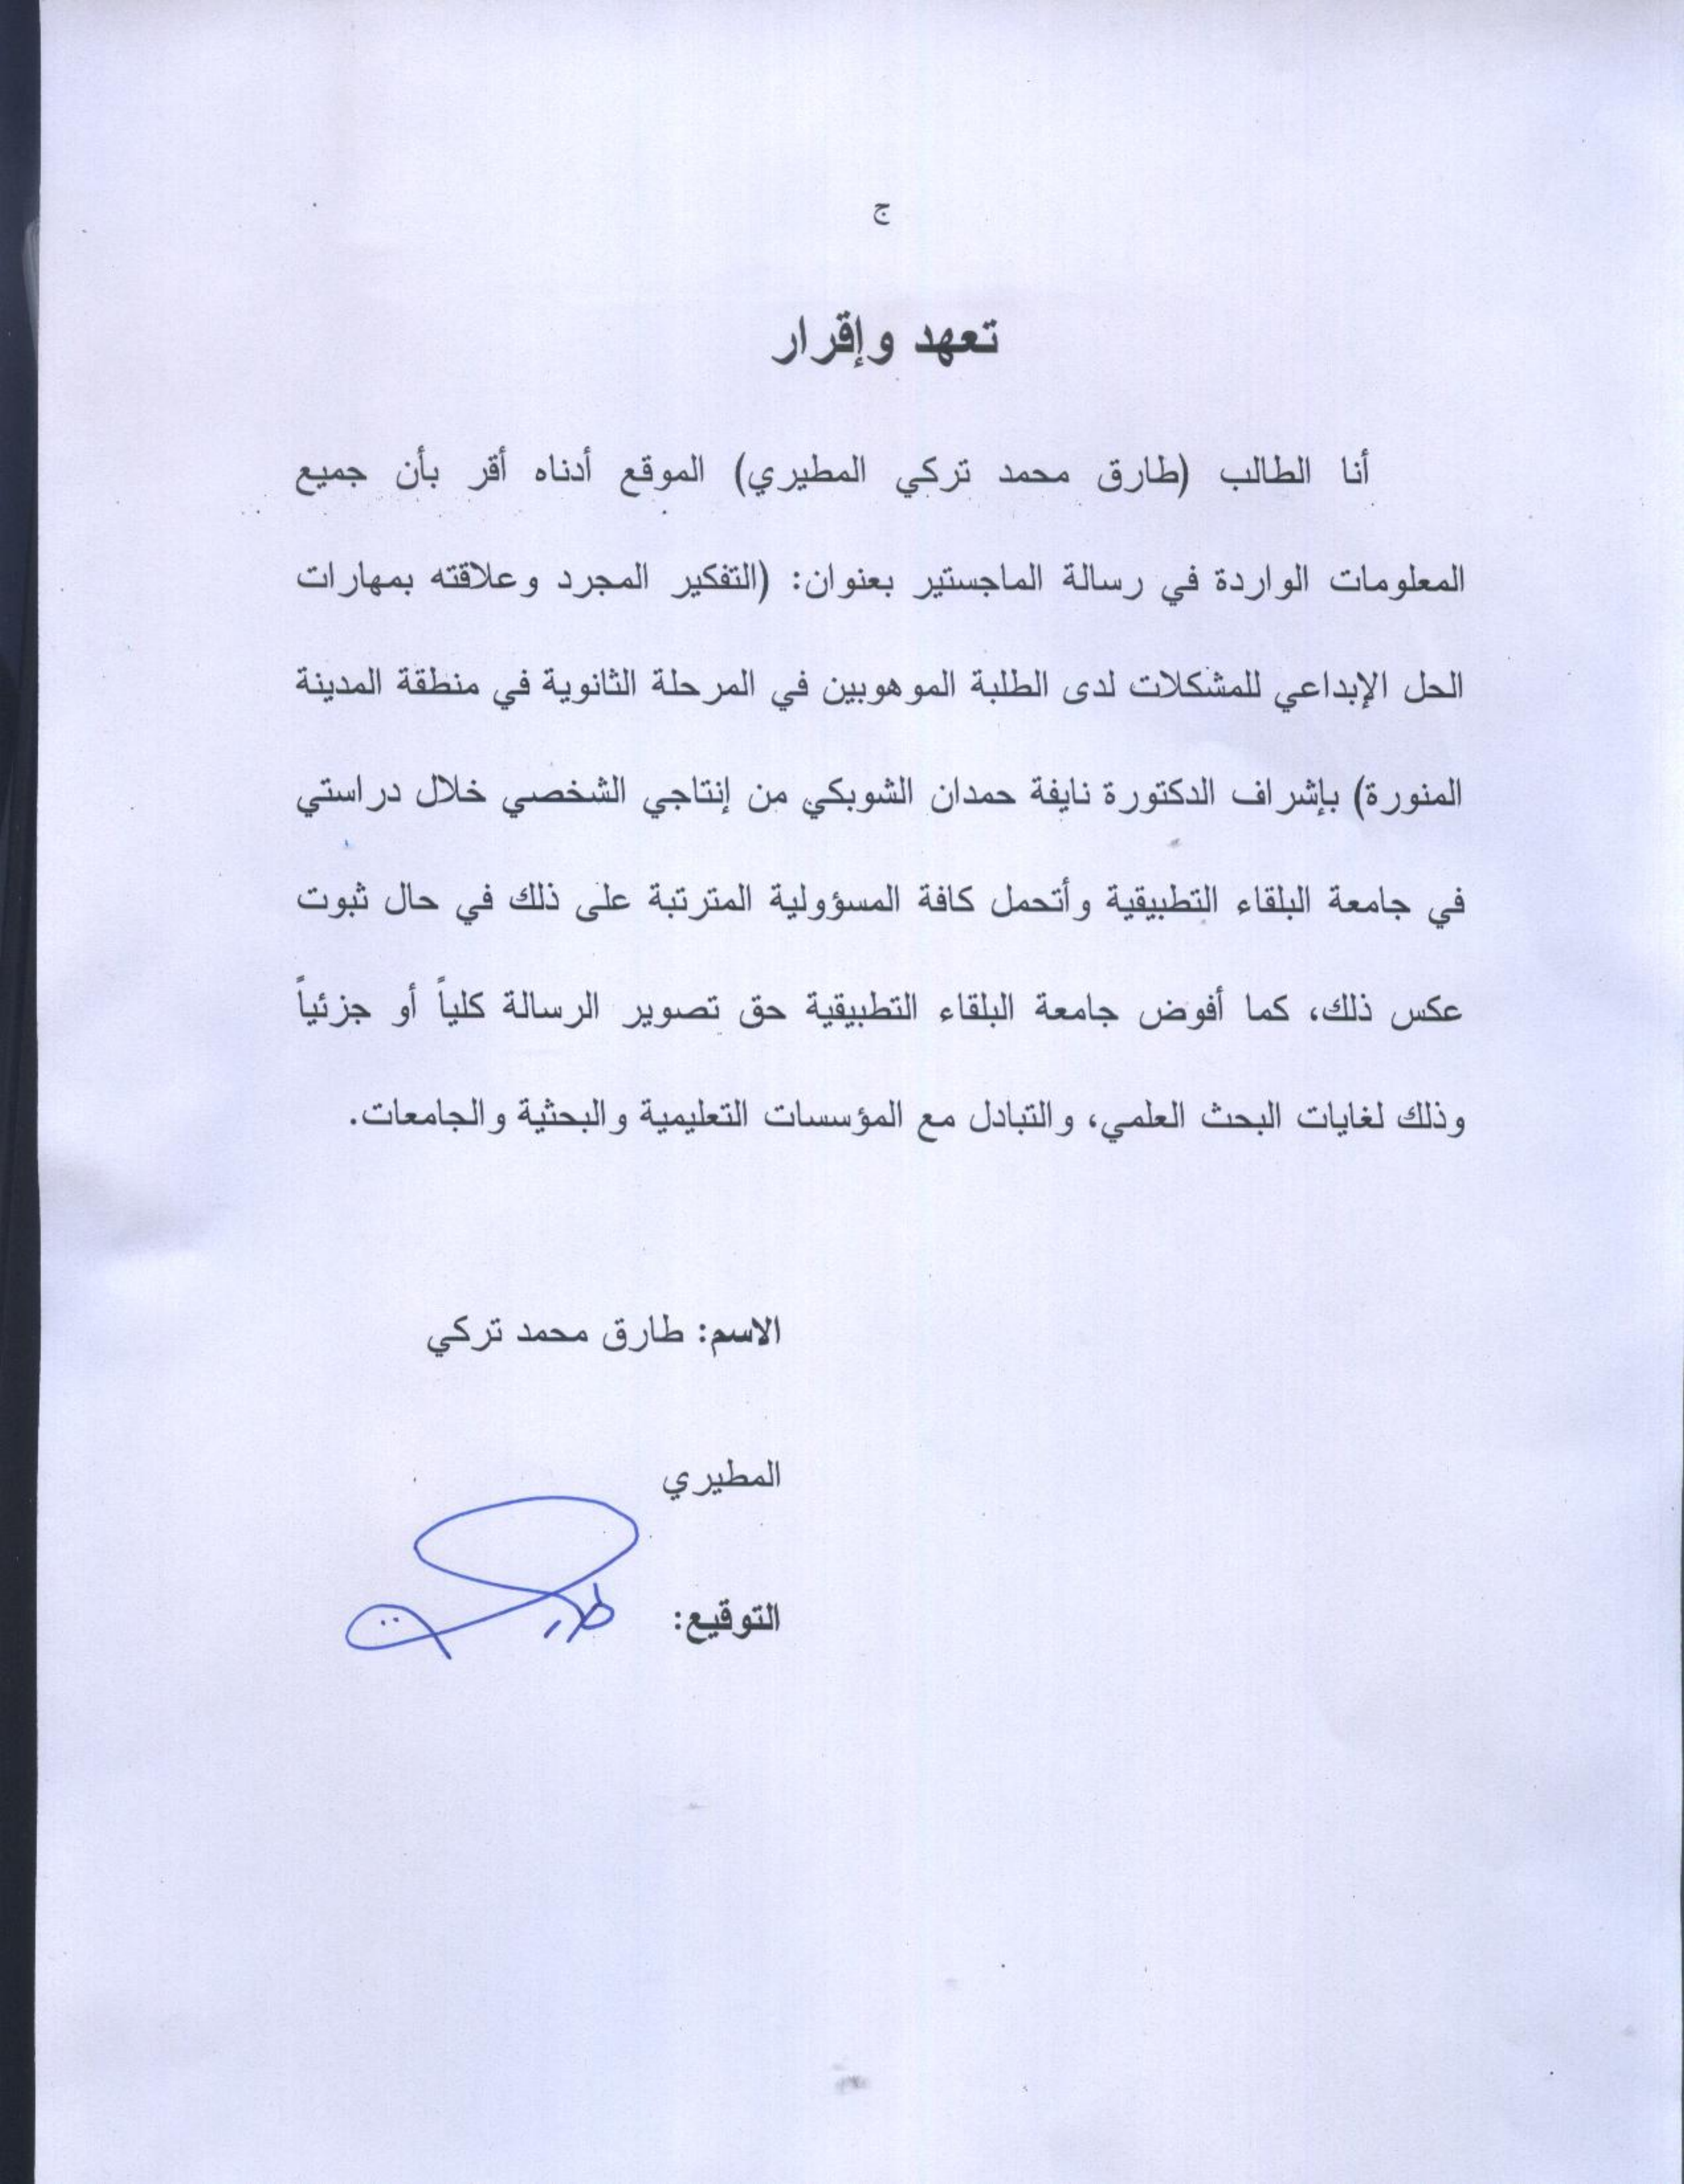 ج
تعهد وإقرار
أنا الطالب (طارق محمد تركي المطيري) الموقع أدناه أقر بأن جميع
المعلومات الواردة في رسالة الماجستير بعنوان: (التفكير المجرد وعلاقته بمهارات
الحل الإبداعي للمشكلات لدى الطلبة الموهوبين في المرحلة الثانوية في منطقة المدينة
المنورة) بإشراف الدكتورة نايفة حمدان الشوبكي من إنتاجي الشخصي خلال دراستي
في جامعة البلقاء التطبيقية وأتحمل كافة المسؤولية المترتبة على ذلك في حال ثبوت
عكس ذلك، كما أفوض جامعة البلقاء التطبيقية حق تصوير الرسالة كلياً أو جزئياً
وذلك لغايات البحث العلمي، والتبادل مع المؤسسات التعليمية والبحثية والجامعات.
الاسم: طارق محمد تركي
المطيري
التوقيع: